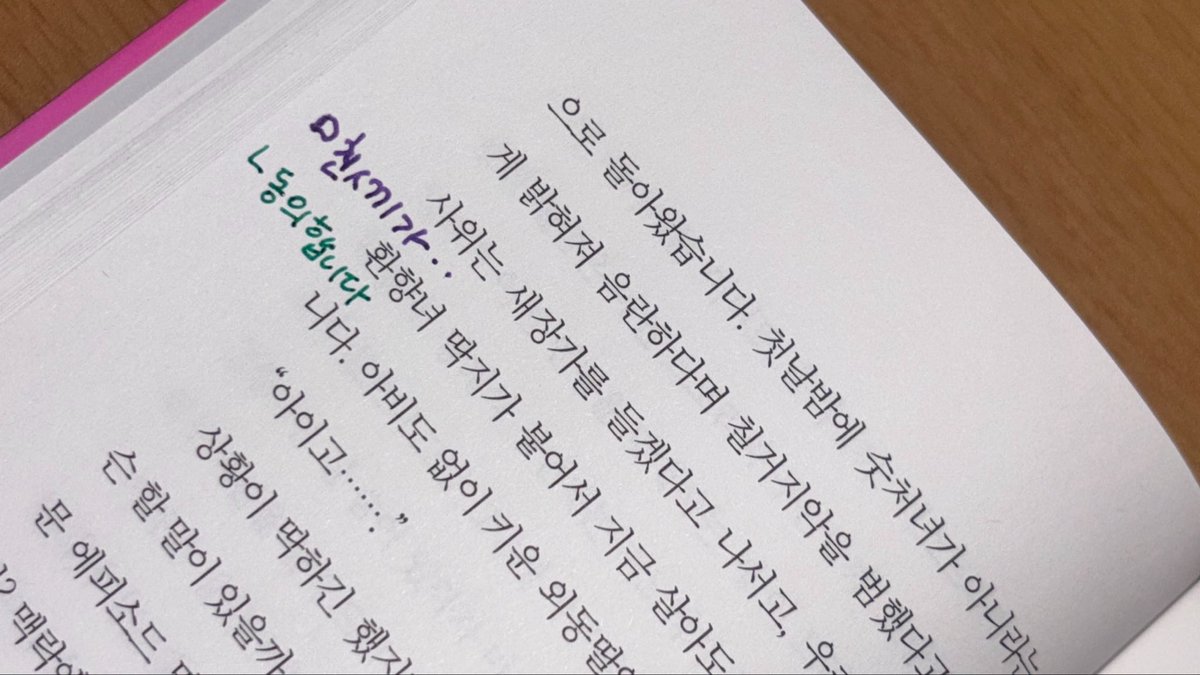 으로 돌아왔습니다. 첫날밤에 숫처녀가 아니라는
게 밝혀져 음란하다며 칠거지악을 범했다고
사위는 새장가를 들겠다고 나서고, 우리
환향녀 딱지가 붙어서 지금 살아도
니다. 아비도 없이 키운 외동딸이
“아이고…….”
상황이 딱하긴 했지
슨 할 말이 있을까
문 에피소드
맥락에
미친새끼가..
ㄴ동의합니다